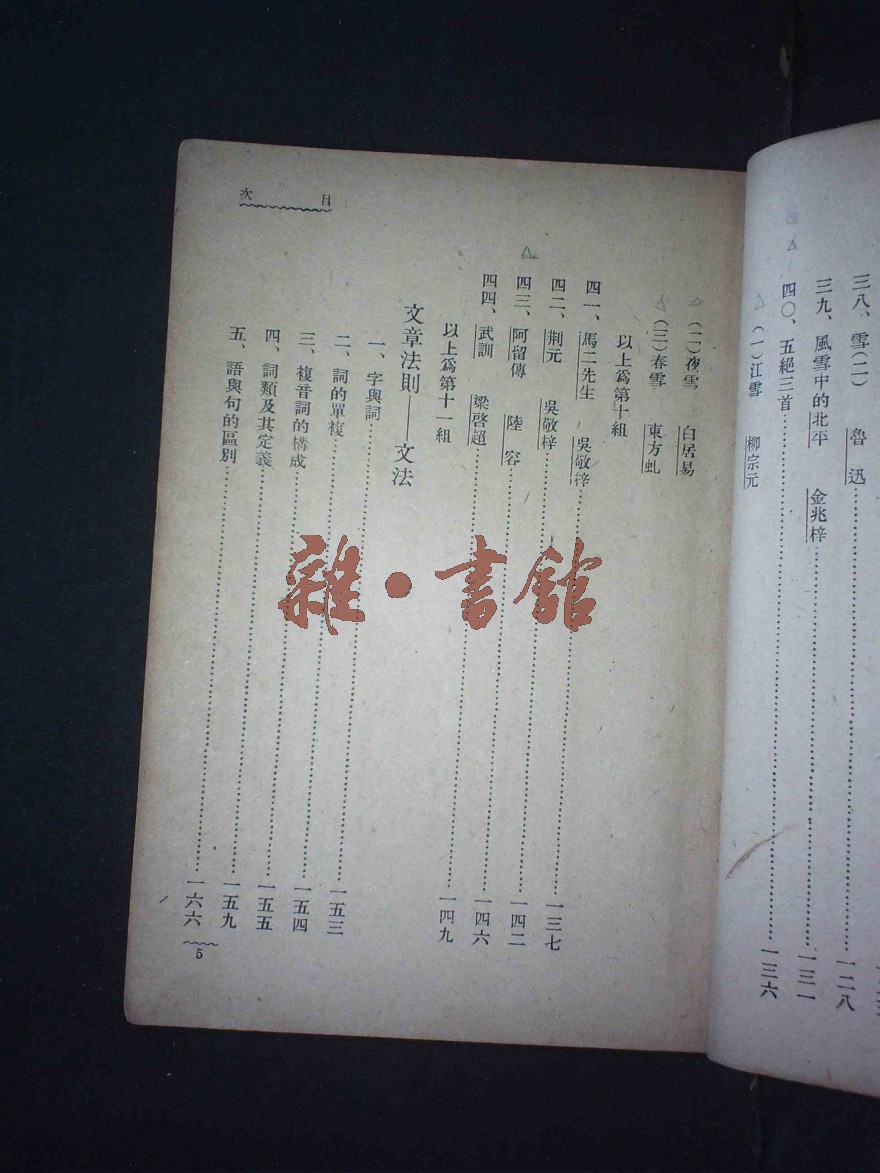 三八、雪(二) 魯迅……一二八
三九、風雪中的北平 金兆梓……一三一
四〇、五絕三首……一三六
(一)江雪 柳宗元
目次
(二)夜雪 白居易
(三)春雪 東方虬
以上爲第十組
四一、馬二先生 吳敬梓……一三七
四二、荆元 吳敬梓……一四二
四三、阿留傳 陸容……一四六
四四、武訓 梁啓超……一四九
以上爲第十一組
文章法則——文法
一、字與詞……一五三
二、詞的單複……一五四
三、複音詞的構成……一五五
四、詞類及其定義……一五九
五、語與句的區別……一六六
5
雜·書館